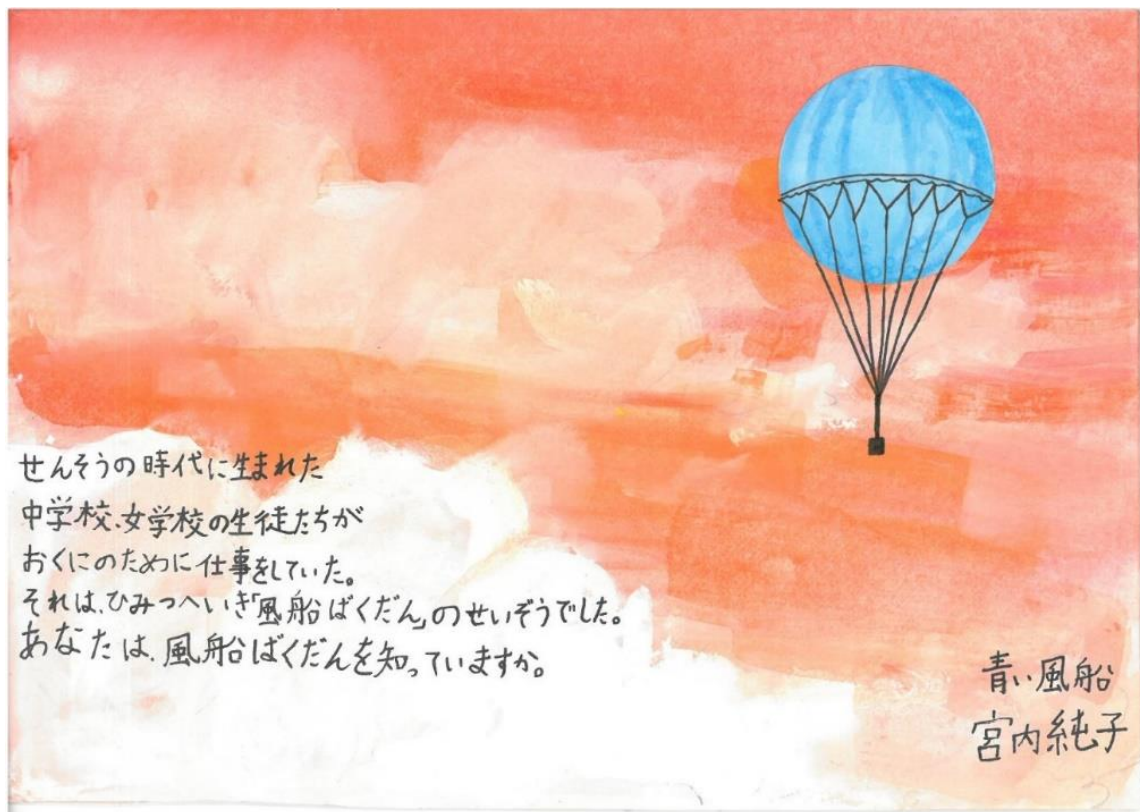 せんそうの時代に生まれた
中学校、女学校の生徒たちが
おくにのために仕事をしていた。
それは、ひみつへいき「風船ばくだん」のせいぞうでした。
あなたは、風船ばくだんを知っていますか。
青い風船
宮内純子